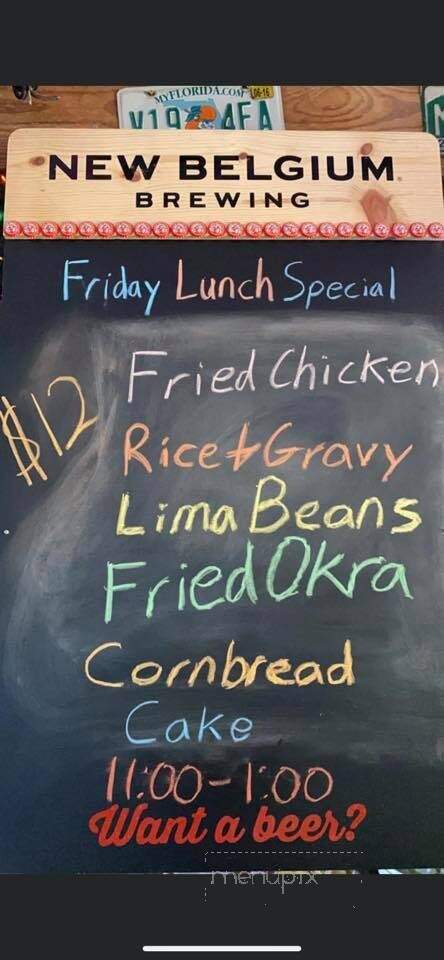 MYFLORIDA.COM 06-16
V19 4EA
NEW BELGIUM
BREWING
Friday Lunch Special
$12
Fried Chicken
Rice + Gravy
Lima Beans
Fried Okra
Cornbread
Cake
11:00-1:00
Want a beer?
menupix